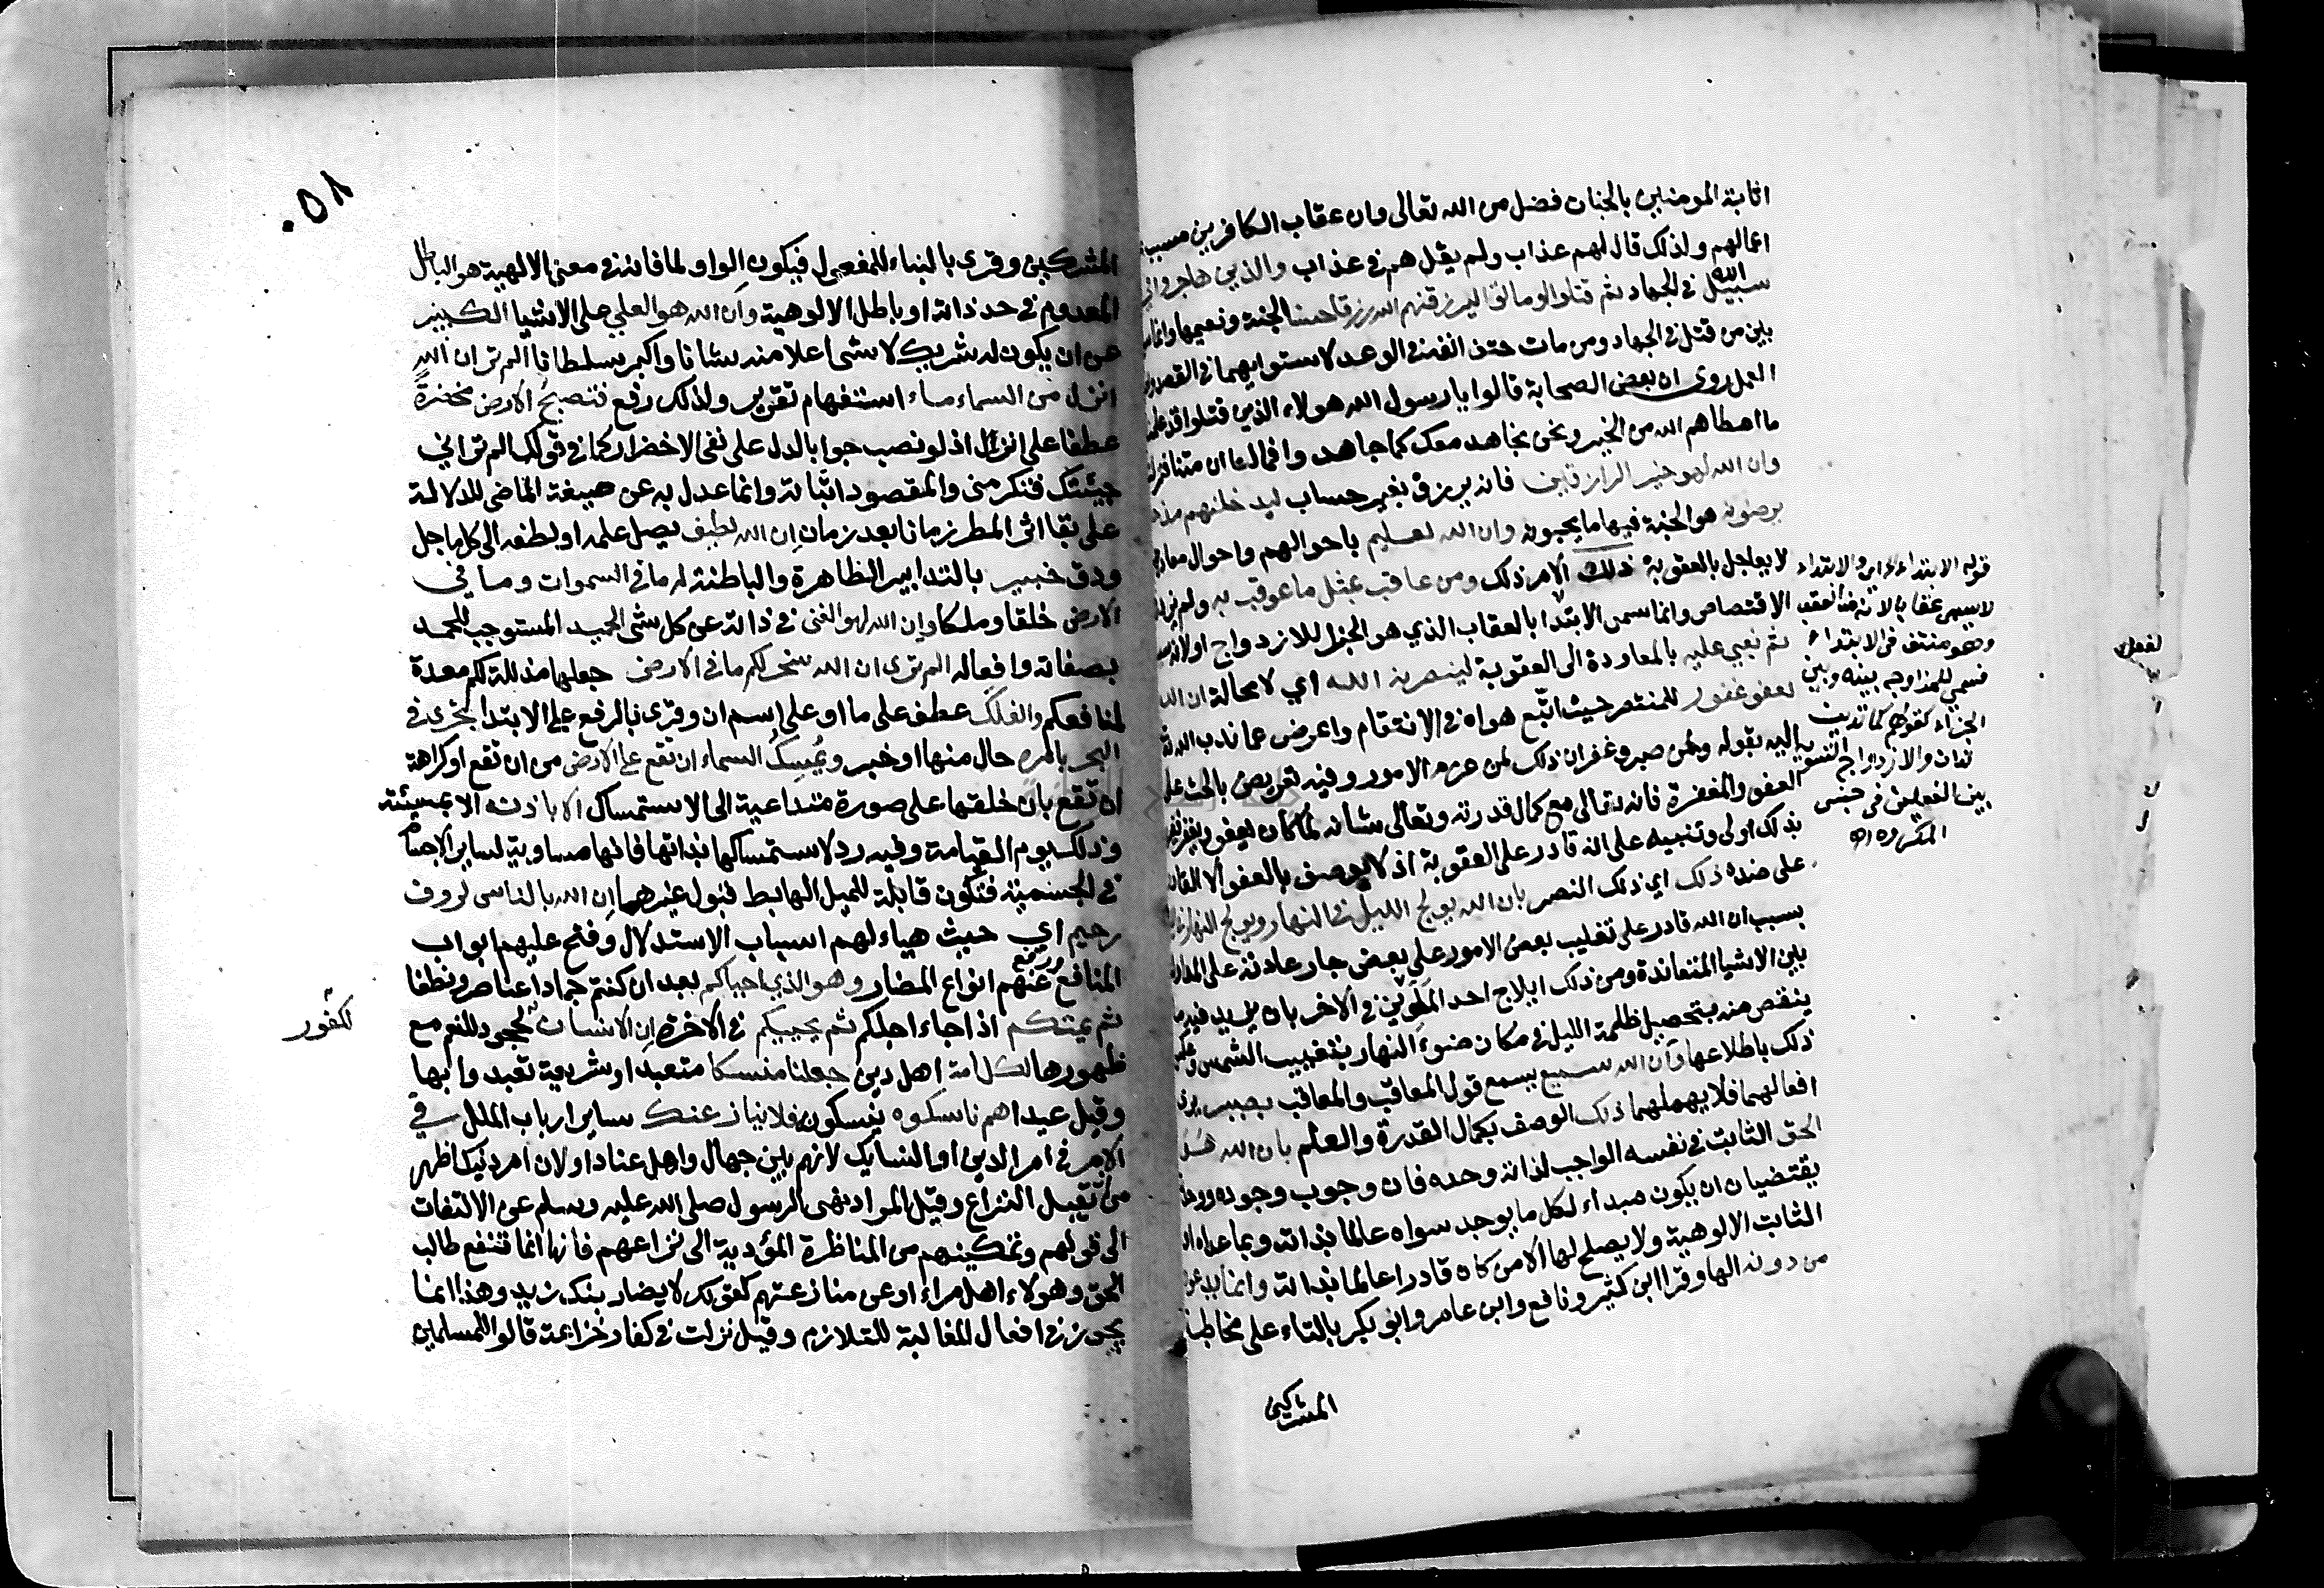 اثابة المومنين بالجنات فضل من الله تعالى وان عقاب الكافرين مسبب
اعمالهم ولذلك قال لهم عذاب ولم يقل هم في عذاب والذين هاجروا في
سبيل الله في الجهاد ثم قتلوا او ماتوا ليرزقنهم الله رزقا حسنا الجنة ونعيمها وانما
بين من قتل في الجهاد ومن مات حتف انفه في الوعد لاستوايهما في القصد
العمل روى ان بعض الصحابة قالوا يا رسول الله هولاء الذين قتلوا قد علمنا
ما اعطاهم الله من الخير ونحن نجاهد معك كما جاهدوا فما لنا ان متنا فنزلت
وان الله لهو خير الرازقين فانه يرزق بغير حساب ليدخلنهم مدخلا
يرضونه هو الجنة فيها ما يحبونه وان الله لعليم باحوالهم واحوال معاديهم
لا يعاجل بالعقوبة ذلك الامر ذلك ومن عاقب بمثل ما عوقب به ولم يزد
الاقتصاص وانما سمى الابتدا بالعقاب الذي هو الجزا للازدواج او لانه
ثم بغي عليه بالمعاودة الى العقوبة لينصرنه الله اي لا محالة ان الله
لعفو غفور للمنتصر حيث اتبع هواه في الانتقام واعرض عما ندب الله
اليه بقوله ولمن صبر وغفر ان ذلك لمن عزم الامور وفيه تعريض بالحث على
العفو والمغفرة فانه تعالى مع كمال قدرته وتعالى شانه لما كان يعفو ويغفر فغيره
بذلك اولى وتنبيه على انه قادر على العقوبة اذ لا يوصف بالعفو الا القادر
على ضده ذلك اي ذلك النصر بان الله يولج الليل في النهار ويولج النهار في
بسبب ان الله قادر على تغليب بعض الامور على بعض جار عادته على المداولة
بين الاشيا المتعاندة ومن ذلك ايلاج احد الملوين في الاخر بان يزيد فيه
ينقص منه بتحصيل ظلمة الليل في مكان ضوء النهار بتغييب الشمس وعكس
ذلك باطلاعها وان الله سميع يسمع قول المعاقب والمعاقب بصير يرى
افعالهما فلا يهملهما ذلك الوصف بكمال القدرة والعلم بان الله هو
الحق الثابت في نفسه الواجب لذاته وحده فان وجوب وجوده ووحدته
يقتضيان ان يكون مبداء لكل ما يوجد سواه عالما بذاته وبما عداه او
الثابت الالوهية ولا يصلح لها الا من كان قادرا عالما بذاته وانما يدعون
من دونه الها وقرا ابن كثير ونافع وابن عامر وابو بكر بالتاء على مخاطبة
المشركين
قوله الابتداء والابتداء
لا يسمى عقابا لانه من العقب
وهو منتف في الابتداء
فسمي للمزاوجه بينه وبين
الجزاء كقولهم كما تدين
تدان والازدواج التسويه
بين الفعلين في جنس
المكروه اه
لفعل
٥٨
المشركين وقرى بالبناء للمفعول فيكون الواو لما فانه في معنى الالهية هو الباطل
المعدوم في حد ذاته او باطل الالوهية وان الله هو العلي على الاشيا الكبير
عن ان يكون له شريك لا شى اعلا منه شانا واكبر سلطانا الم تر ان الله
انزل من السماء ماء استفهام تقرير ولذلك رفع فتصبح الارض مخضرة
عطفا على انزل اذ لو نصب جوابا لدل على نفى الاخضرار كما في قولك الم تر اني
جيتك فتكرمني والمقصود اثباته وانما عدل به عن صيغة الماضي للدلالة
على بقا اثر المطر زمانا بعد زمان ان الله لطيف يصل علمه او لطفه الى كل ما جل
ودق خبير بالتدابير الظاهرة والباطنة له ما في السموات وما في
الارض خلقا وملكا وان الله لهو الغنى في ذاته عن كل شى الحميد المستوجب للحمد
بصفاته وافعاله الم ترى ان الله سخر لكم ما في الارض جعلها مذللة لكم معدة
لمنافعكم والفلك عطف على ما او على اسم ان وقرى بالرفع على الابتدا تجرى في
البحر بامره حال منها او خبر ويمسك السماء ان تقع على الارض من ان تقع او كراهة
ان تقع بان خلقها على صورة متداعية الى الاستمساك الا باذنه الا بمشيئته
وذلك يوم القيامة وفيه رد لاستمساكها بذاتها فانها مساوية لساير الاجسام
في الجسمية فتكون قابلة للميل الهابط قبول غيرهما ان الله بالناس لروف
رحيم اي حيث هياء لهم اسباب الاستدلال وفتح عليهم ابواب
المنافع ودفع عنهم انواع المضار وهو الذي احياكم بعد ان كنتم جمادا عناصر ونطفا
ثم يميتكم اذا جاء اجلكم ثم يحييكم في الاخرة ان الانسان لجحود للنعم مع
لكفور
ظهورها لكل امة اهل دين جعلنا منسكا متعبدا او شريعة تعبدوا بها
وقيل عيدا هم ناسكوه ينسكون فلا ينازعنك ساير ارباب الملل في
الامر في امر الدين او النسايك لانهم بين جهال واهل عناد او لان امر دينك اظهر
من ان يقبل النزاع وقيل المراد نهى الرسول صلى الله عليه وسلم عن الالتفات
الى قولهم وتمكينهم من المناظرة المؤدية الى نزاعهم فانها انما تنفع طالب
الحق وهولاء اهل مراء او عن منازعتهم كقولك لا يضاربنك زيد وهذا انما
يجوز في افعال المغالبة للتلازم وقيل نزلت في كفار خزاعة قالوا للمسلمين